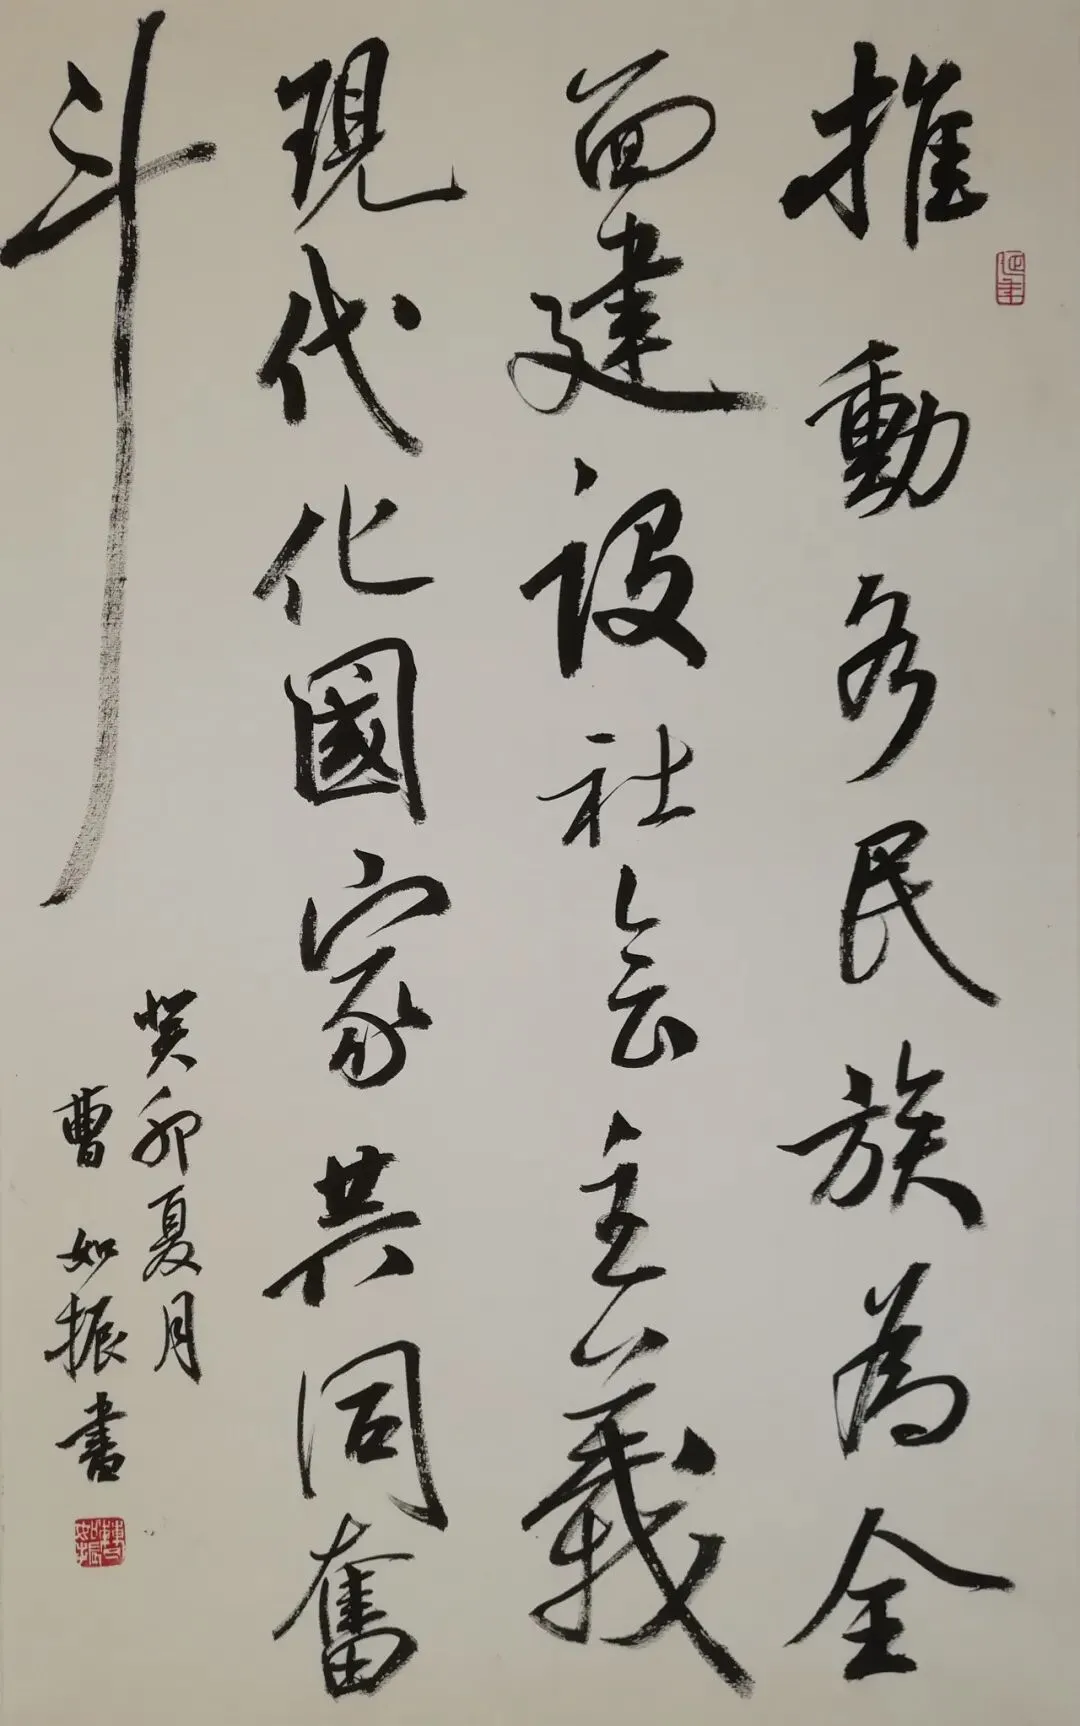 推動各民族為全
面建設社会主義
現代化國家共同奮
斗
癸卯夏月
曹如振書